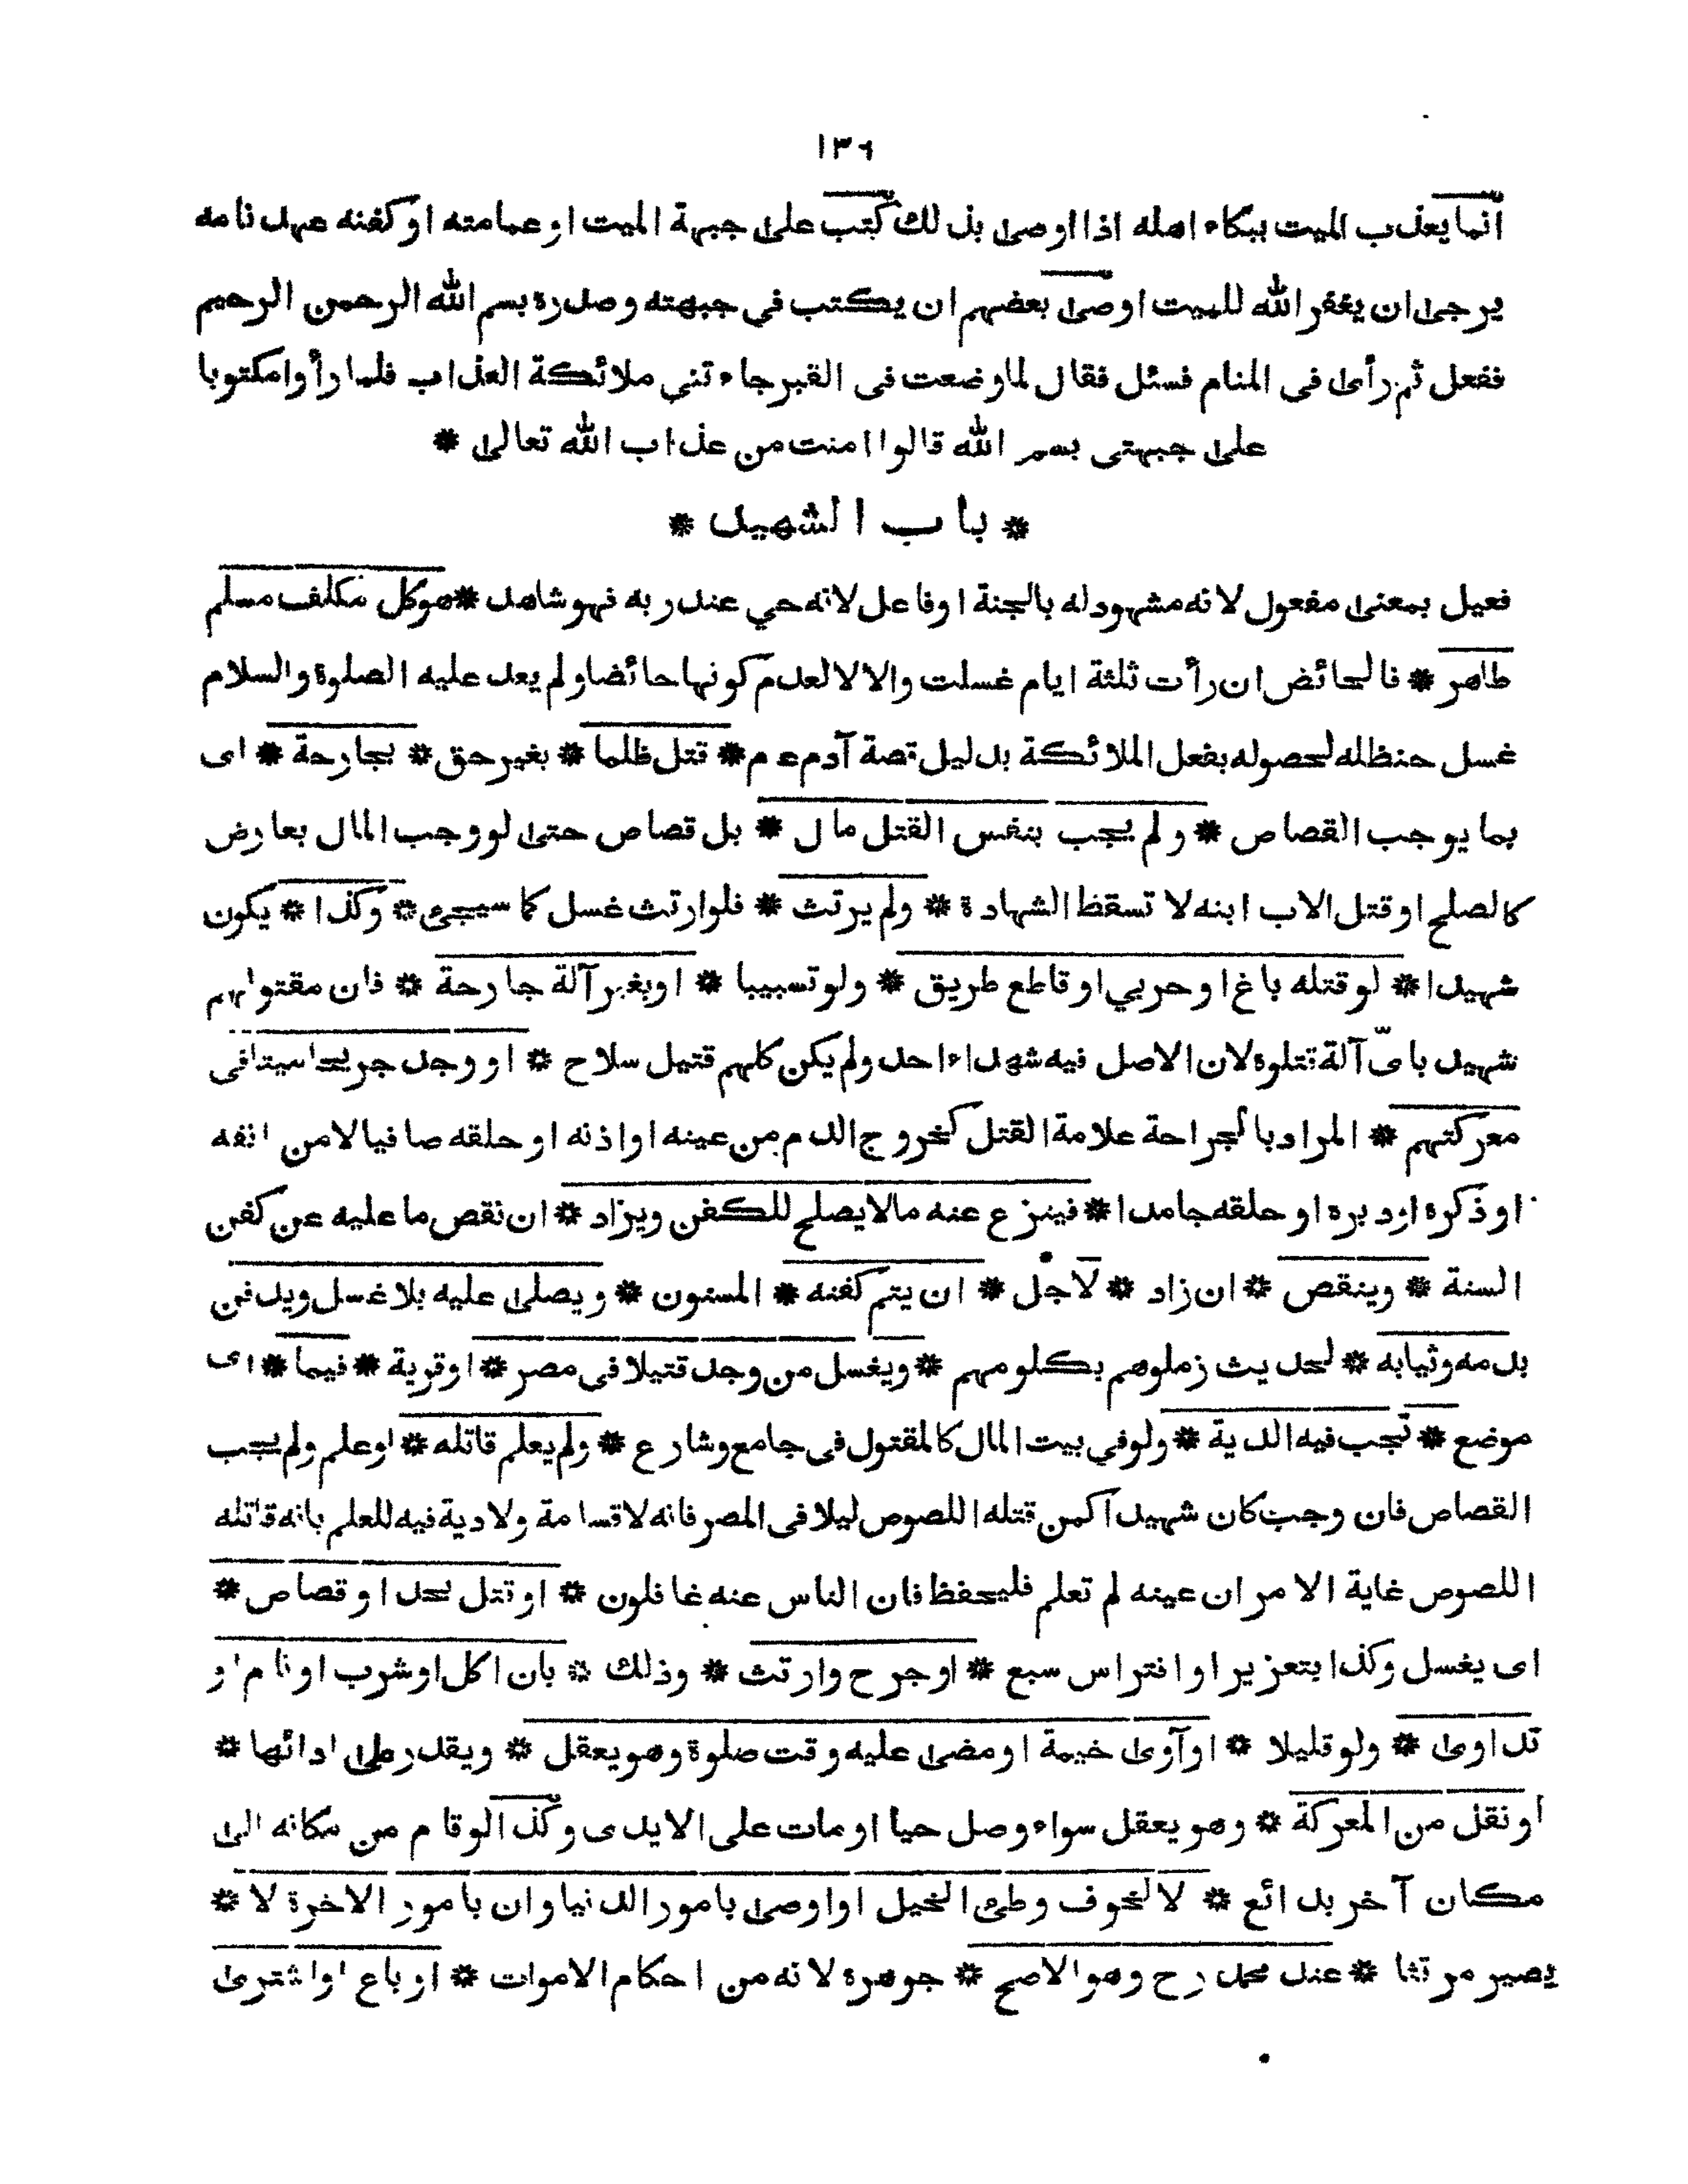 ١٣٦
انما يعذب الميت ببكاء اهله اذا اوصى بذلك كتب على جبهة الميت او عمامته او كفنه عهد نامه
يرجى ان يغفر الله للميت اوصى بعضهم ان يكتب في جبهته وصدره بسم الله الرحمن الرحيم
ففعل ثم رأى فى المنام فسئل فقال لما وضعت فى القبر جاءتنى ملائكة العذاب فلما رأوا مكتوبا
على جبهتى بسم الله قالوا امنت من عذاب الله تعالى *
* باب الشهيد *
فعيل بمعنى مفعول لانه مشهود له بالجنة او فاعل لانه حي عند ربه فهو شاهد * هو كل مكلف مسلم
طاهر * فالحائض ان رأت ثلثة ايام غسلت والا لا لعدم كونها حائضا ولم يعد عليه الصلوة والسلام
غسل حنظله لحصوله بفعل الملائكة بدليل قصة آدم ع م * قتل ظلما * بغير حق * بجارحة * اى
بما يوجب القصاص * ولم يجب بنفس القتل مال * بل قصاص حتى لو وجب المال بعارض
كالصلح او قتل الاب ابنه لا تسقط الشهادة * ولم يرتث * فلو ارتث غسل كما سيجئ * وكذا * يكون
شهيدا * لو قتله باغ او حربي او قاطع طريق * ولو تسبيبا * او بغير آلة جارحة * فان مقتولهم
شهيد باىّ آلة قتلوه لان الاصل فيه شهداء احد ولم يكن كلهم قتيل سلاح * او وجد جريحا ميتا فى
معركتهم * المراد بالجراحة علامة القتل كخروج الدم من عينه او اذنه او حلقه صافيا لا من انفه
او ذكره او دبره او حلقه جامدا * فينزع عنه مالا يصلح للكفن ويزاد * ان نقص ما عليه عن كفن
السنة * وينقص * ان زاد * لاجل * ان يتم كفنه * المسنون * ويصلى عليه بلا غسل ويدفن
بدمه وثيابه * لحديث زملوهم بكلومهم * ويغسل من وجد قتيلا فى مصر * او قرية * فيما * اى
موضع * تجب فيه الدية * ولو في بيت المال كالمقتول فى جامع وشارع * ولم يعلم قاتله * او علم ولم يجب
القصاص فان وجب كان شهيدا كمن قتله اللصوص ليلا فى المصر فانه لا قسامة ولا دية فيه للعلم بانه قاتله
اللصوص غاية الامر ان عينه لم تعلم فليحفظ فان الناس عنه غافلون * او قتل لحد او قصاص *
اى يغسل وكذا بتعزير او افتراس سبع * او جرح وارتث * وذلك * بان اكل او شرب او نام او
تداوى * ولو قليلا * او آوى خيمة او مضى عليه وقت صلوة وهو يعقل * ويقدر على ادائها *
او نقل من المعركة * وهو يعقل سواء وصل حيا او مات على الايدى وكذا لو قام من مكانه الى
مكان آخر بدائع * لا لخوف وطئ الخيل او اوصى بامور الدنيا وان بامور الاخرة لا *
يصير مرتثا * عند محمد رح وهو الاصح * جوهرة لانه من احكام الاموات * او باع او اشترى